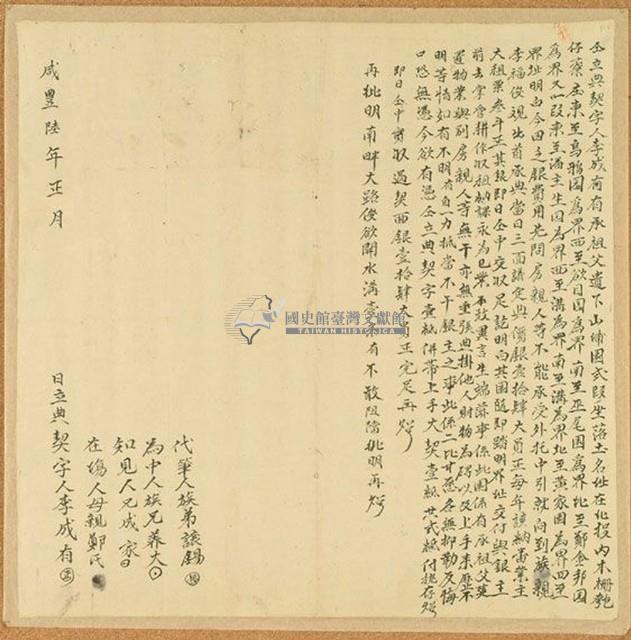 仝立典契字人李成有有承祖父遺下山埔園弍段坐落土名址在北投內木柵
仔藔庄東至烏鴉園為界西至欲目園為界南至巫尾園為界北至鄭金邦園
為界又一段東至滿主生园為界西至溝為界南至溝為界北至黃家園為界四至
界址明白今因乏銀費用先問房親人等不能承受外托中引就向到族親
李福俊觀出首承典當日三面議定典價銀壹拾肆大員正每年該納番業主
大租粟叁斗正其銀即日仝中交收足訖明白其園隨即踏明界址交付與銀主
前去掌管耕作收租納課永為己業不敢異言生端滋事係此園係有承祖父
置物業與別房親人等無干亦無重張典掛他人財物為碍以及上手來歷不
明等情如有不明有自一力抵當不干銀主之事此係二比甘愿各無抑勒反悔
口恐無憑今欲有憑仝立典契字壹紙併帶上手大契壹紙共弍紙付執存炤
即日仝中實收過契面銀壹拾肆大員正完足再炤
再批明南畔大路俊欲開水溝有不敢阻擋批明再炤
代筆人族弟
為中人族兄養大
知見人兄成家
在塲人母親鄭氏
咸豐陸年正月 日立典契字人李成有
國史館臺灣文獻館
TAIWAN HISTORICA